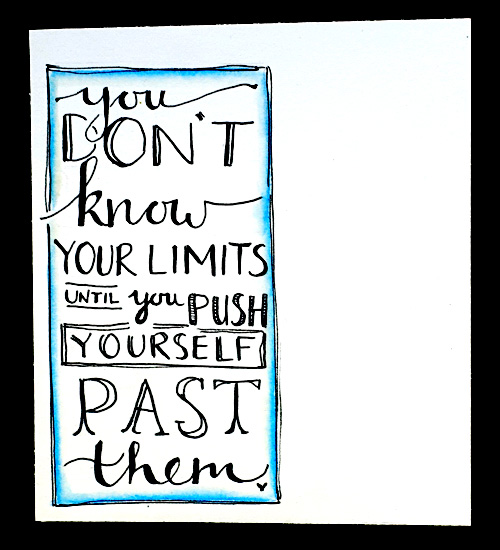 you
DON'T
know
YOUR LIMITS
UNTIL you PUSH
YOURSELF
PAST
them.